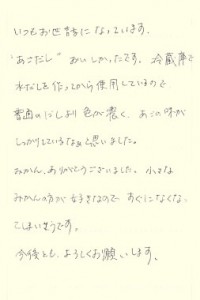 いつもお世話になっています。
"あごだし" おいしかったです。冷蔵庫で
水だしを作ってから使用しているので、
普通のだしより色が濃く、あごの味が
しっかりしているなぁと思いました。
みかん、ありがとうございました。小さな
みかんの方が好きなので すぐになくなっ
てしまいそうです。
今後とも、よろしくお願いします。